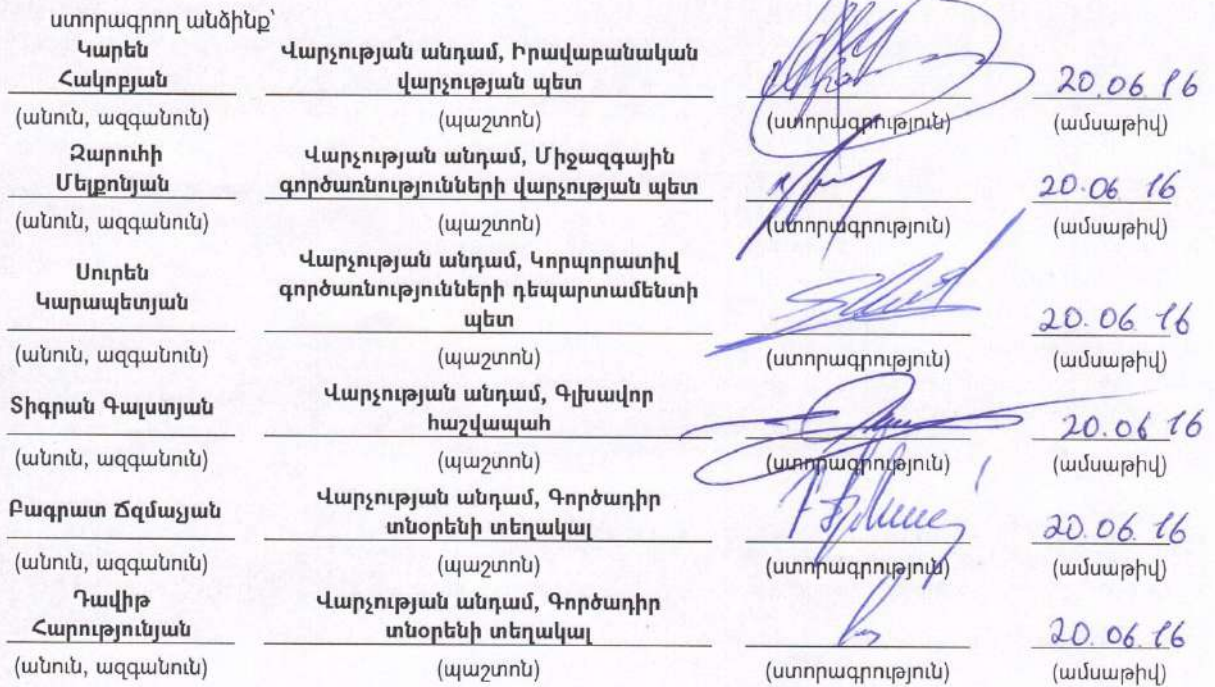 ստորագրող անձինք՝
Կարեն Վարչության անդամ, Իրավաբանական
Հակոբյան վարչության պետ 20.06.16
(անուն, ազգանուն) (պաշտոն) (ստորագրություն) (ամսաթիվ)
Զարուհի Վարչության անդամ, Միջազգային
Մելքոնյան գործառնությունների վարչության պետ 20.06.16
(անուն, ազգանուն) (պաշտոն) (ստորագրություն) (ամսաթիվ)
Վարչության անդամ, Կորպորատիվ
Սուրեն գործառնությունների դեպարտամենտի
Կարապետյան պետ 20.06.16
(անուն, ազգանուն) (պաշտոն) (ստորագրություն) (ամսաթիվ)
Տիգրան Գալստյան Վարչության անդամ, Գլխավոր
հաշվապահ 20.06.16
(անուն, ազգանուն) (պաշտոն) (ստորագրություն) (ամսաթիվ)
Բագրատ Ճզմաչյան Վարչության անդամ, Գործադիր
տնօրենի տեղակալ 20.06.16
(անուն, ազգանուն) (պաշտոն) (ստորագրություն) (ամսաթիվ)
Դավիթ Վարչության անդամ, Գործադիր
Հարությունյան տնօրենի տեղակալ 20.06.16
(անուն, ազգանուն) (պաշտոն) (ստորագրություն) (ամսաթիվ)